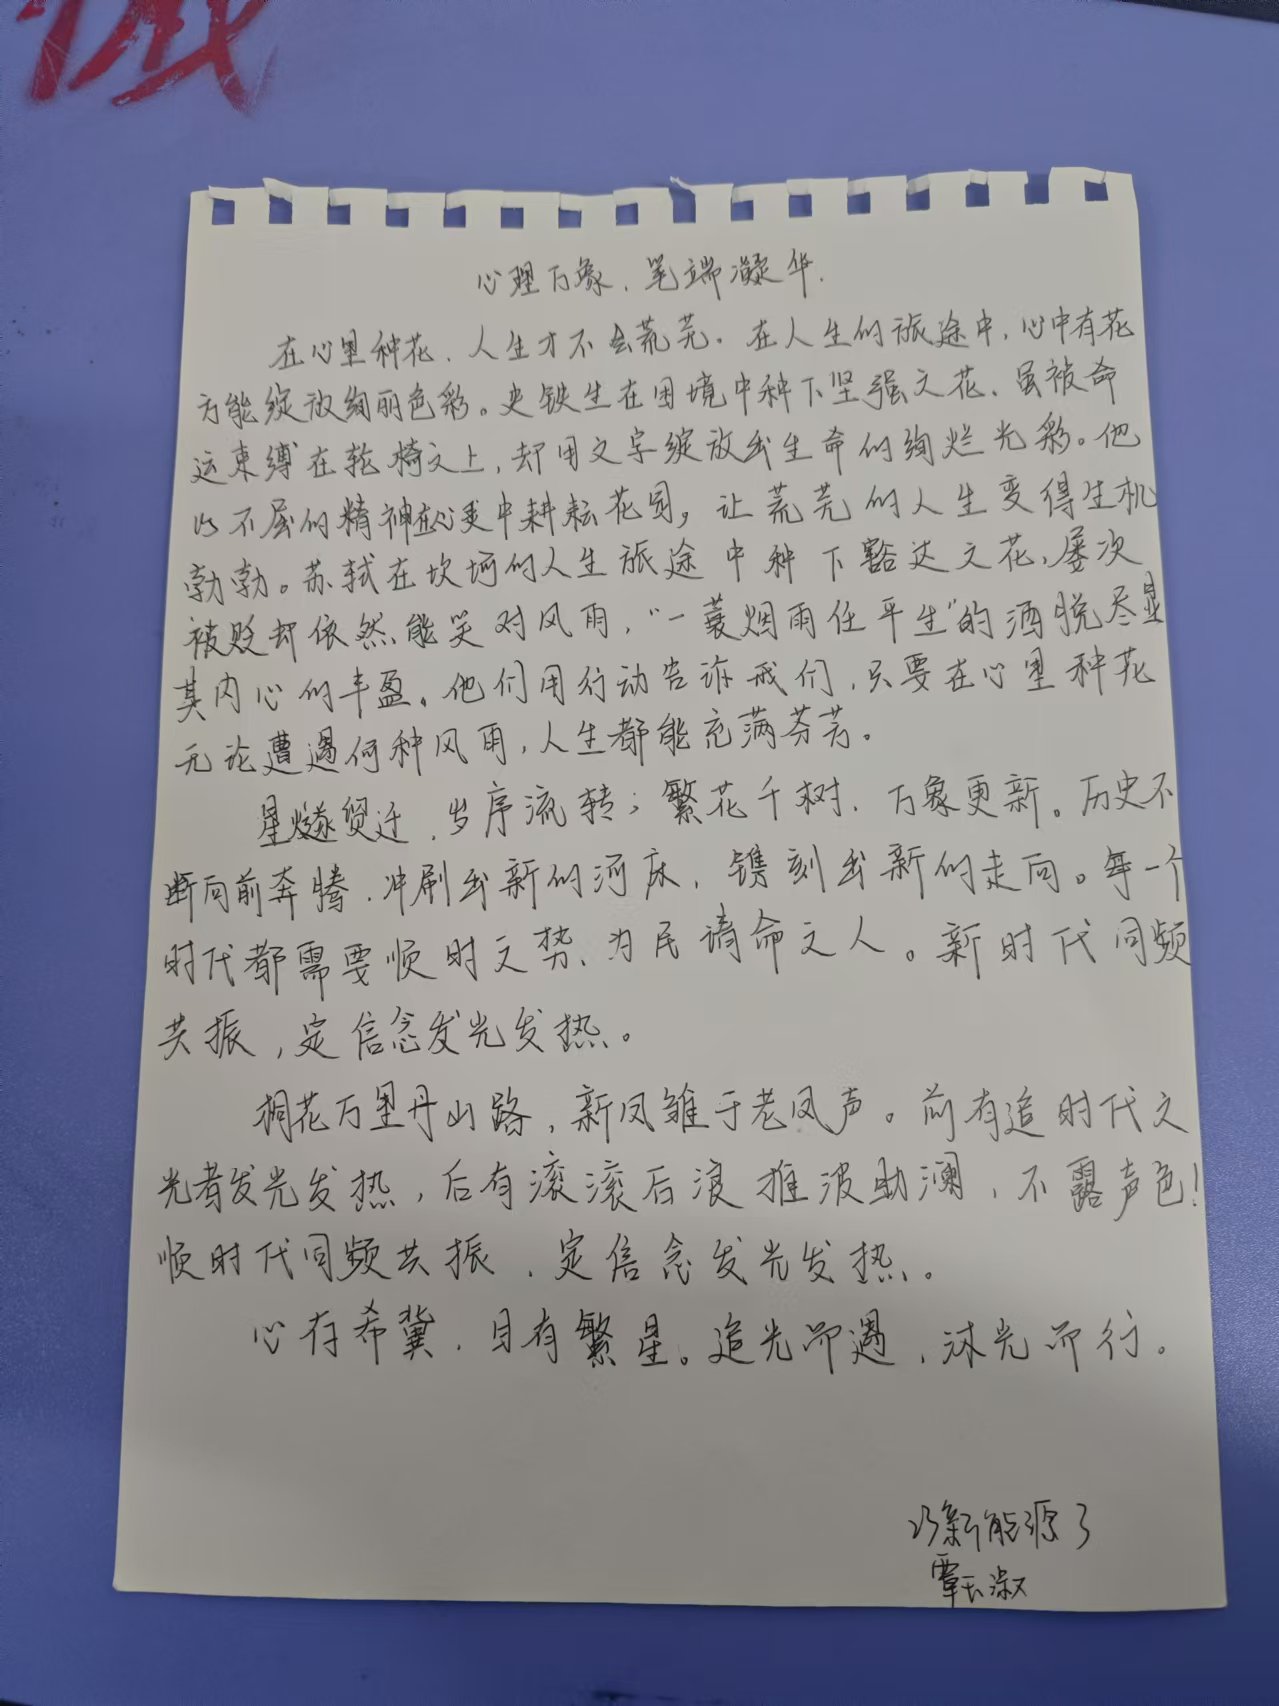 诚
心理万象，笔端凝华.
在心里种花，人生才不会荒芜。在人生的旅途中，心中有花
方能绽放绚丽色彩。史铁生在困境中种下坚强之花，虽被命
运束缚在轮椅之上，却用文字绽放出生命的绚烂光彩。他
以不屈的精神在心灵中耕耘花园，让荒芜的人生变得生机
勃勃。苏轼在坎坷的人生旅途中种下豁达之花，屡次
被贬却依然能笑对风雨，“一蓑烟雨任平生”的洒脱尽显
其内心的丰盈。他们用行动告诉我们，只要在心里种花
无论遭遇何种风雨，人生都能充满芬芳。
星燧贸迁，岁序流转；繁花千树，万象更新。历史不
断向前奔腾，冲刷出新的河床，镌刻出新的走向。每一个
时代都需要顺时之势、为民请命之人。新时代同频
共振，定信念发光发热。
桐花万里丹山路，新凤雏于老凤声。前有追时代之
光者发光发热，后有滚滚后浪推波助澜，不露声色！
顺时代同频共振，定信念发光发热。
心存希冀，目有繁星。追光而遇，沐光而行。
新能源3
覃玉淑